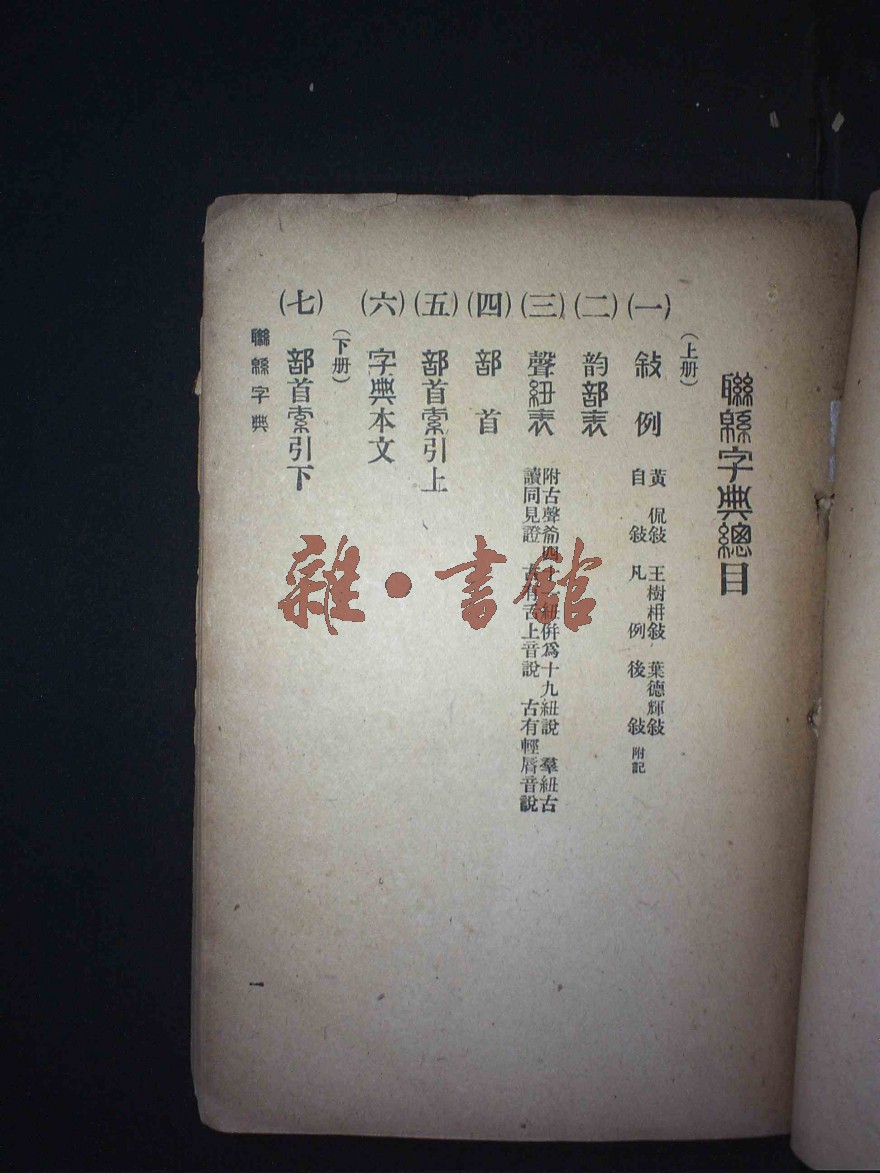 聯緜字典總目
(上册)
(一) 敍例 黃侃敍 王樹枏敍 葉德輝敍
自敍 凡例 後敍 附記
(二) 韵部表
(三) 聲紐表 附古聲 紐併爲十九紐說 羣紐古
讀同見證 古有舌上音說 古有輕脣音說
(四) 部首
(五) 部首索引上
(六) 字典本文
(下册)
(七) 部首索引下
聯緜字典
一
雜·書館